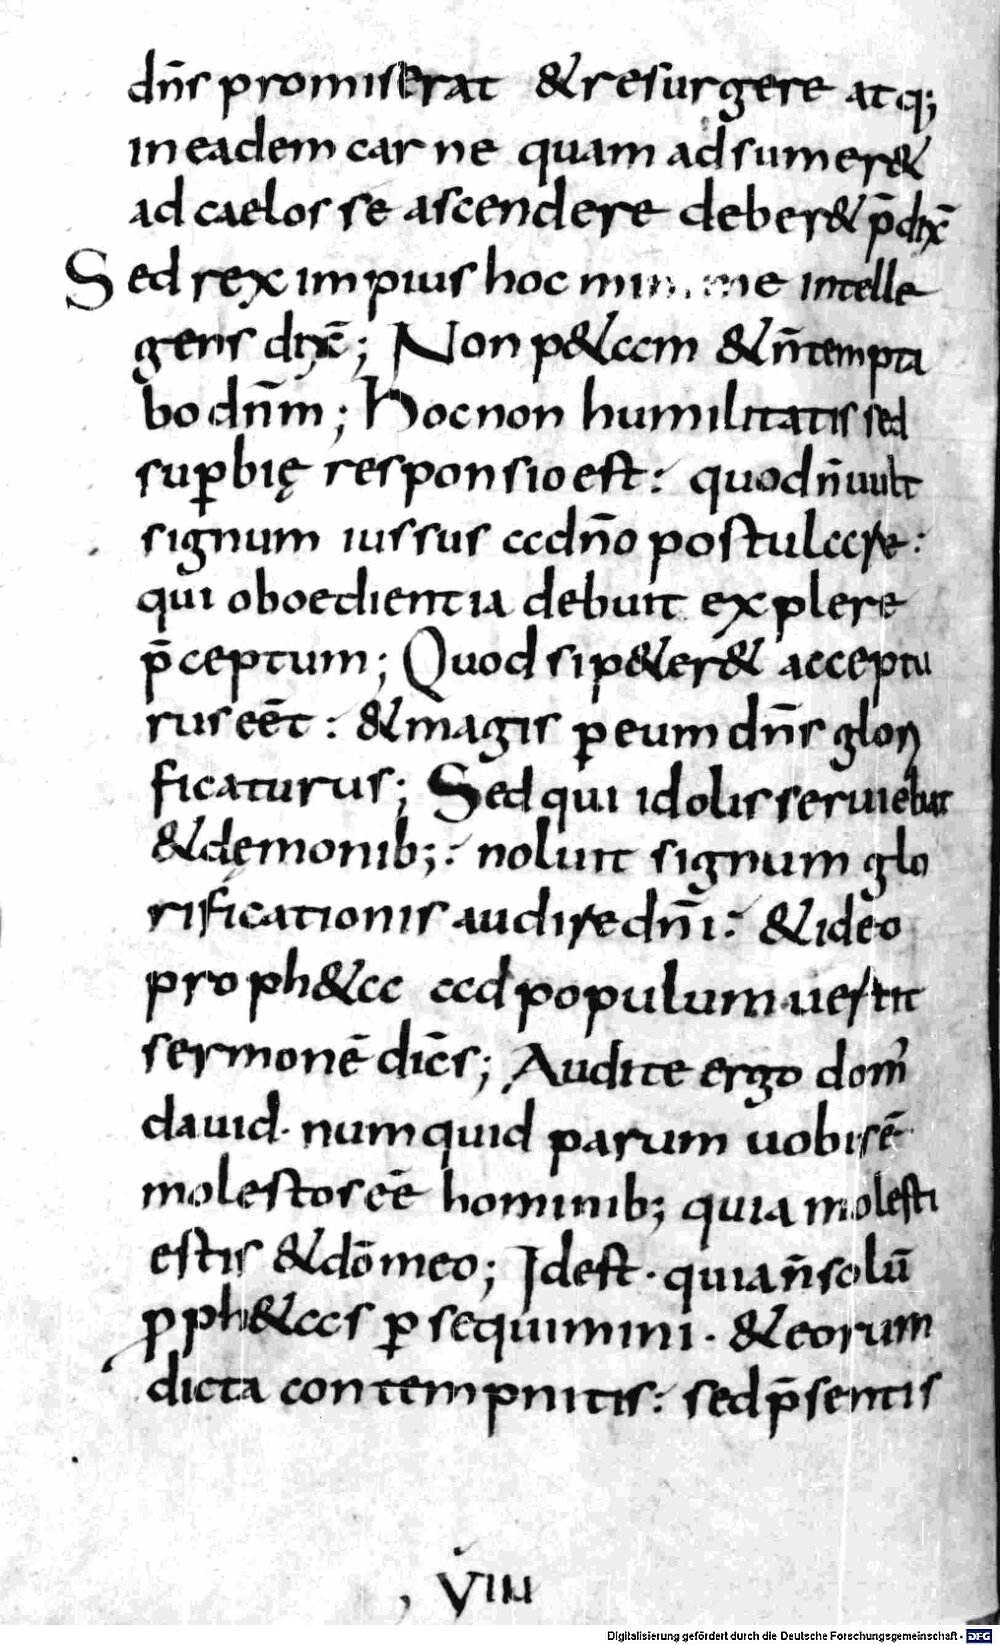 dn̄s promiserat & resurgere atq;
in eadem carne quam adsumer&
ad caelos se ascendere deber& p̄dix̄
Sed rex impius hoc minime intelle
gens dix̄; Non p&am & n̄ tempta
bo dn̄m; Hoc non humilitatis sed
sup̱bię responsio est: quod n̄ uult
signum iussus a dn̄o postulare:
qui oboedientia debuit explere
p̄ceptum; Quod si p&er& acceptu
rus eēt: & magis p̱ eum dn̄s glori
ficaturus; Sed qui idolis seruiebat
& dęmonib;: noluit signum glo
rificationis audire dn̄i: & ideo
proph&a ad populum uertit
sermonē dicēs; Audite ergo dom̄
dauid· numquid parum uobis ē
molestos eē hominib; quia molesti
estis & dō meo; Idest· quia n̄ solū
ꝓph&as p̱sequimini· & eorum
dicta contempnitis: sed p̄sentis
VIIII
Digitalisierung gefördert durch die Deutsche Forschungsgemeinschaft - DFG